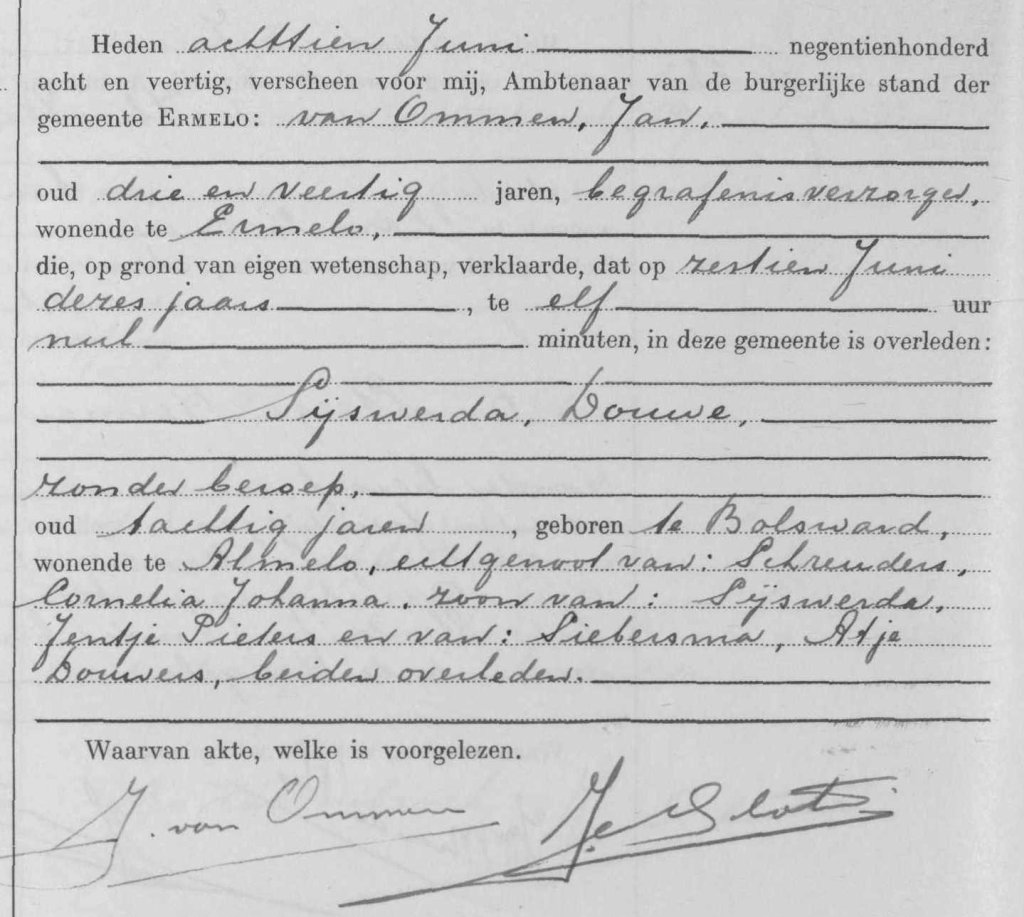 Heden achttien Juni negentienhonderd
acht en veertig, verscheen voor mij, Ambtenaar van de burgerlijke stand der
gemeente ERMELO: van Ommen, Jan,
oud drie en veertig jaren, begrafenisverzorger,
wonende te Ermelo,
die, op grond van eigen wetenschap, verklaarde, dat op zestien Juni
dezes jaars, te elf uur
nul minuten, in deze gemeente is overleden:
Sijswerda, Douwe,
zonder beroep,
oud tachtig jaren, geboren te Bolsward,
wonende te Almelo, echtgenoot van: Schreuders,
Cornelia Johanna, zoon van: Sijswerda,
Jentje Pieters en van: Siebersma, Atje
Douwes, beiden overleden.
Waarvan akte, welke is voorgelezen.
J. van Ommen